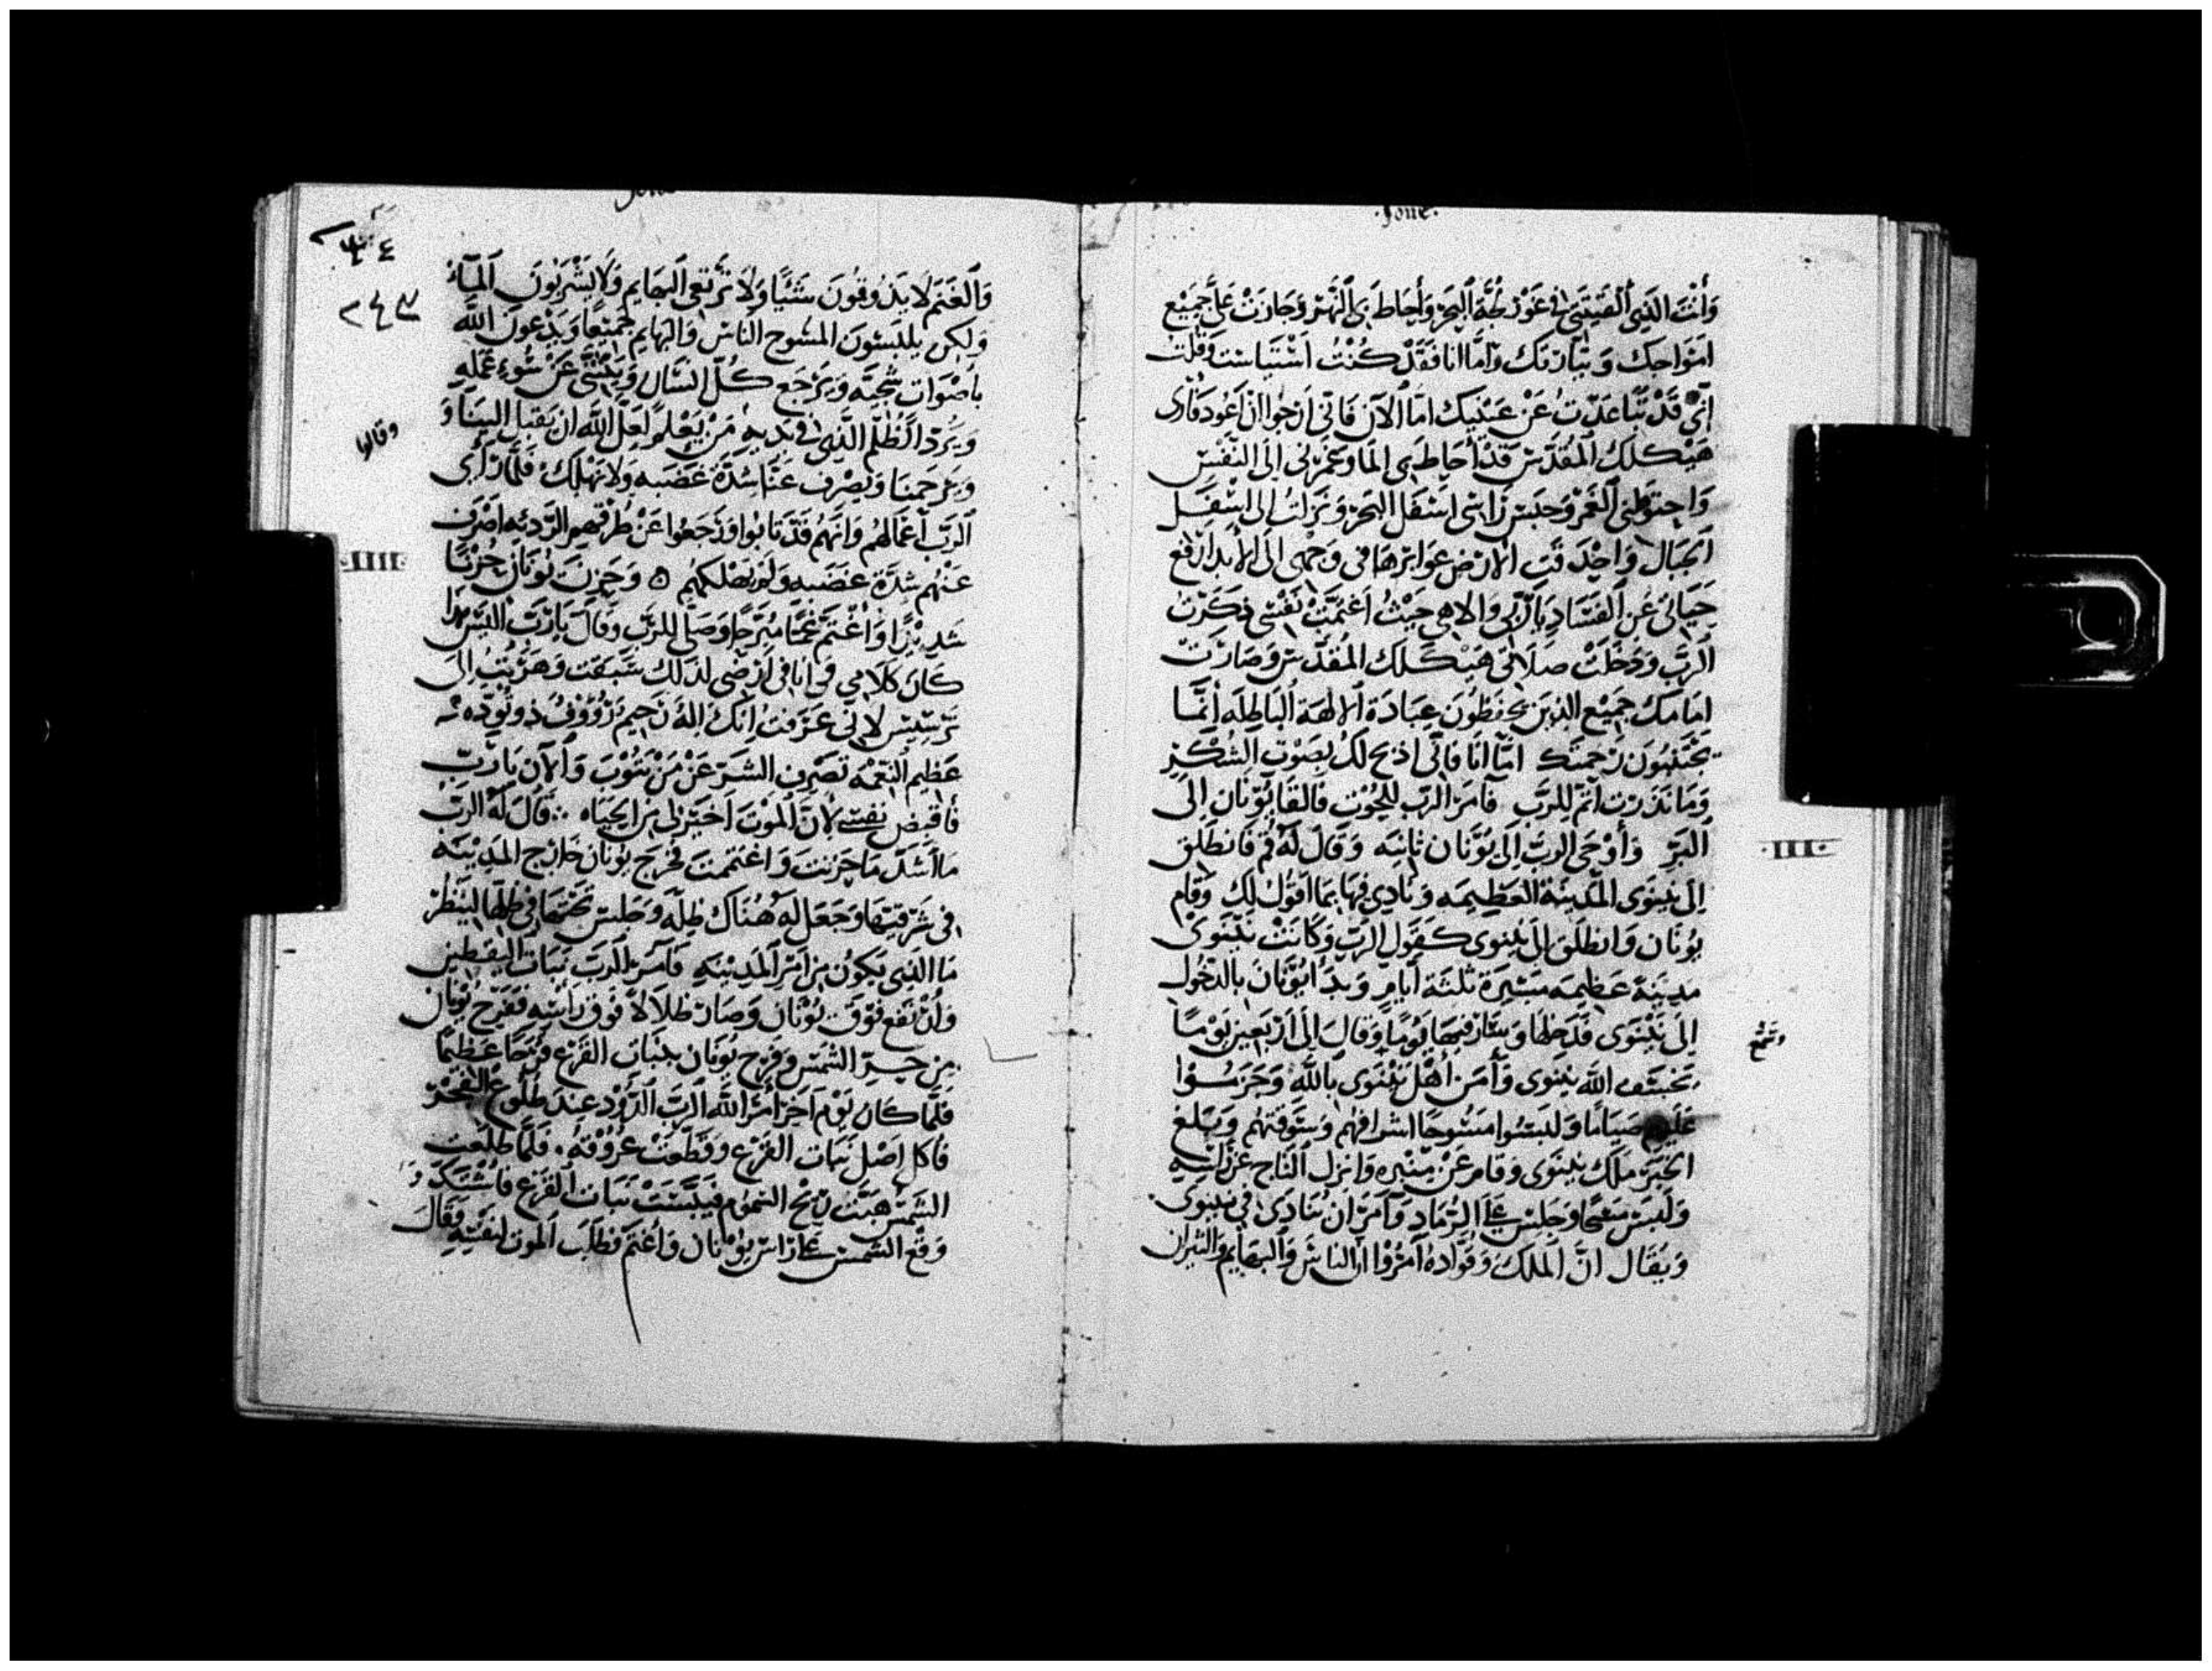 Jone.
وَأَنْتَ الذَي ٱلْقَيتَنِي في غَوْر لُجَّة ٱلبَحَرْ وَأَحَاطَ بِي ٱلنَّهَرْ وَجَازَتْ عَلَيَّ جَمِيْع
امَوَاجك وَ تيَّارَتك وَامَّا انا فَقَدْ كُنْتُ اسْتَيَاست وَقُلْتُ
انّي قَدْ تَبَاعَدّتُ عَنْ عَيْنَيك امَّا الآن فَانّي ارَجُوا انْ اعُود فَارَى
هَيْكلكَ المُقَدّس قَدْ أحَاط بِي المَا وَغَمَرَني الَى النَّفسِ
وَاحتوَطَني الغَمْر وَحَبَسَ رَاسِي اسْفَل البَحَرْ وَنَزَلتُ الى اسْفَل
الجَبَال وَاخِذَة الارَض عَوَارضهَا في وَجْهِي الَى الأَبَد ارْفَع
حَيَاتي عَن الفَسَادِ يَا رَبّي وَالاهي حَيْثُ اغتَمَّتْ نَفْسي ذكَرْتُ
الرَبَّ وَدَخَلَتْ صَلَاتي هَيْكَلك المُقَدَّس وَصَارَت
امَامكَ جَمِيْع الذِينَ يحفَظُونَ عِبَادَة الالهَة البَاطِلَه انَّمَا
يَجْتَنبُونَ رَحمتَك امَّا انَا فَانّي اذبَح لَكَ بِصَوْت الشُكْرِ
وَمَا نَذَرْت اتمّ للِرَّبّ فَامَرَ الرَبّ للِحُوْت فَالقَا يُوْنَان الَى
البَرّ وَأوْحَى الربُّ الَى يُوْنَان ثانيَه وَقَالَ لَهُ قُم فَانطَلِق
الَى نِينَوَى المَدِينَة العَظِيمَه وَنَادِي فيهَا بِمَا اقَوْل لَك وَقَام
يُونَان وَانطَلَق الَى نِينوى كَقَول الرَّبّ وَكَانَتْ نِيْنَوَى
مدِينَة عَظِيمَه مَسْيرَة ثلثَة ايَّامٍ وَبدَأ يُوْنَان بالدّخُول
الَى نِيْنَوَى فَدَخلهَا وَسَارَ فيهَا يَوْمًا وَقالَ الَى ارْبَعِين يَوْمًا
يَخْسَف الله بنِينوى وَأَمَنَ أهْل نِيْنَوَى باللهِ وَحَرَّمُوْا
عَلَيْهِم صيَامًا وَلَبسُوا مسُوحًا اشرافهُم وَسَوَقَتهُم وَبَلَغ
الخَبَر مَلَك نِينَوَى وَقَام عَنْ مِنْبَرِه وَانزَل التَاج عَنْ رَاسِهِ
وَلَبَسَ مسْحًا وَجَلسَ عَلَى الرَمَادِ وَأَمَرَ انْ يُنَادَى في نِينَوى
وَيُقَال انَّ المَلكَ وَقوَّادهُ امَرُوْا انَّ الناسَ وَالبهَايم وَالثيرَان
وَٱلغَنَم لَا يَذُوقُونَ شَيْئًا وَلَا تَرْتَعي البَهَايم وَلَا يشْرَبُونَ المَآءَ
وَلكِن يلبَسُونَ المسُوح النَّاس وَالبهَايم جَمِيْعًا وَيَدْعونَ اللهَ
باصْوَات شجيَّه وَيَرْجَع كُلّ انسَان عَنْ سُوءِ عَمَلِهِ
وَيرُدّ الظُلْم الَّذِي في يَدَيهِ مَنْ يَعْلم لَعلَّ الله ان يَقبَل الينَا وَ
وَيَرْحَمنَا وَيَصْرف عَنَّا شدَّة غَضَبه وَلَا نَهْلِكْ فَلَمَّا رَأَى
الرَبّ اعَمَالهُم وَانَّهُم قَدْ تَابُوا وَرَجَعُوا عَنْ طُرقهم الرَّدِئه اصْرَف
عَنْهُم شدَّة غَضَبه وَلَم يهلكهُم ٥ وَحَزنَ يُونَان حُزْنًا
شَدِيْدًا وَاغْتَمَّ غمًّا مُبَرّحًا وَصَلَّى للرَبِّ وَقَالَ يَا رَبّ الَيْسَ هَذا
كَان كَلَامي وَانا في ارْضي لذلك سَبَقت وَهَرَبْتُ الى
تَرسِيس لانّي عَرَفتُ انّكَ الهٌ رَحِيمٌ رَؤُوْفٌ ذو تُؤَده
عَظِيم النّعَمْه تصْرف الشَرّ عَنْ مَنْ يَتُوْبَ وَالآن يَا رَبّ
فَاقبض نَفسي لأنَّ المَوْتَ اخيَرَ لي مِنَ الحَيَاه ∴ قَالَ لَهُ الرَبّ
مَا اشَدّ مَا حَزنتَ وَاغْتَممتَ فخَرَج يُونَان خَارج المَدِيْنَه
في شَرقيّتهَا وَجَعَلَ لَهُ هُنَاك ظلَّه وَجَلسَ تحْتَهَا في ظلّهَا ليَنظُر
مَا الذِي يَكُون مِن امَر المَدِيْنَه فَامَرَ الرَبّ نَبَات اليَقطين
وَارْتفَع فَوْق يُوْنَان وَصَار ظلَالًا فَوْق رَاسِهِ فَفَرح يُوْنَان
مِن حَرّ الشَمْس وَفَرح يُونَان بنَبات القَرْع فَرَحًا عَظِيْمًا
فلَمَّا كَان يَوْم آخَر أمَرَ اللهُ الرَبّ الدُوْد عِندَ طُلُوْع الفَجْر
فَاكَل اصْل نَبَات القَرْع وَقَطّعَتْ عرُوْقهُ، فَلَمَّا طلَعَت
الشَمْس هَبَّت رِيْح السمُوم فيَبّسَتْ نَبَات القَرْع فَاشْتَدّ وَ
وَقْع الشَمس عَلى رَاسْ يوُنَان وَاغتَمّ فطَلَبَ المَوت لِنَفسِهِ وَقَالَ
وقالوا
وسَمِع